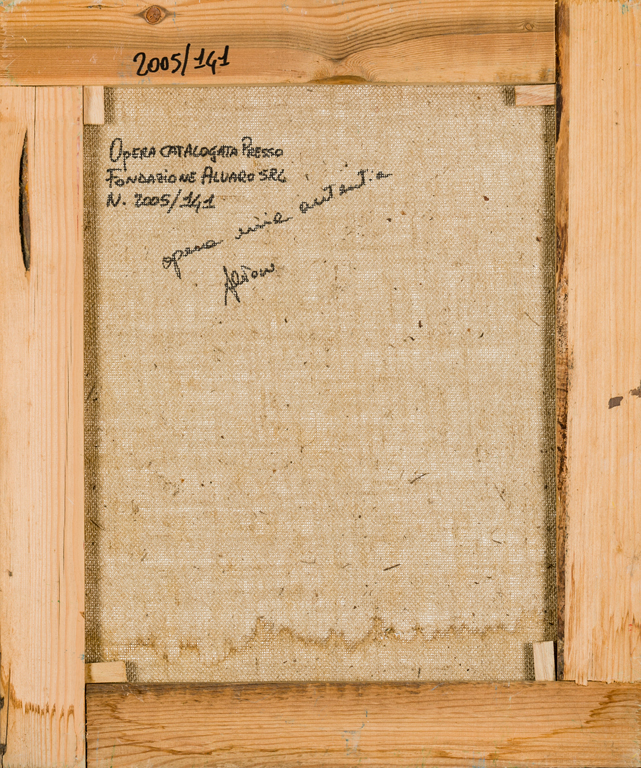 2005/141
OPERA CATALOGATA PRESSO
FONDAZIONE ALVARO SRL
N. 2005/141
opera mia autentica